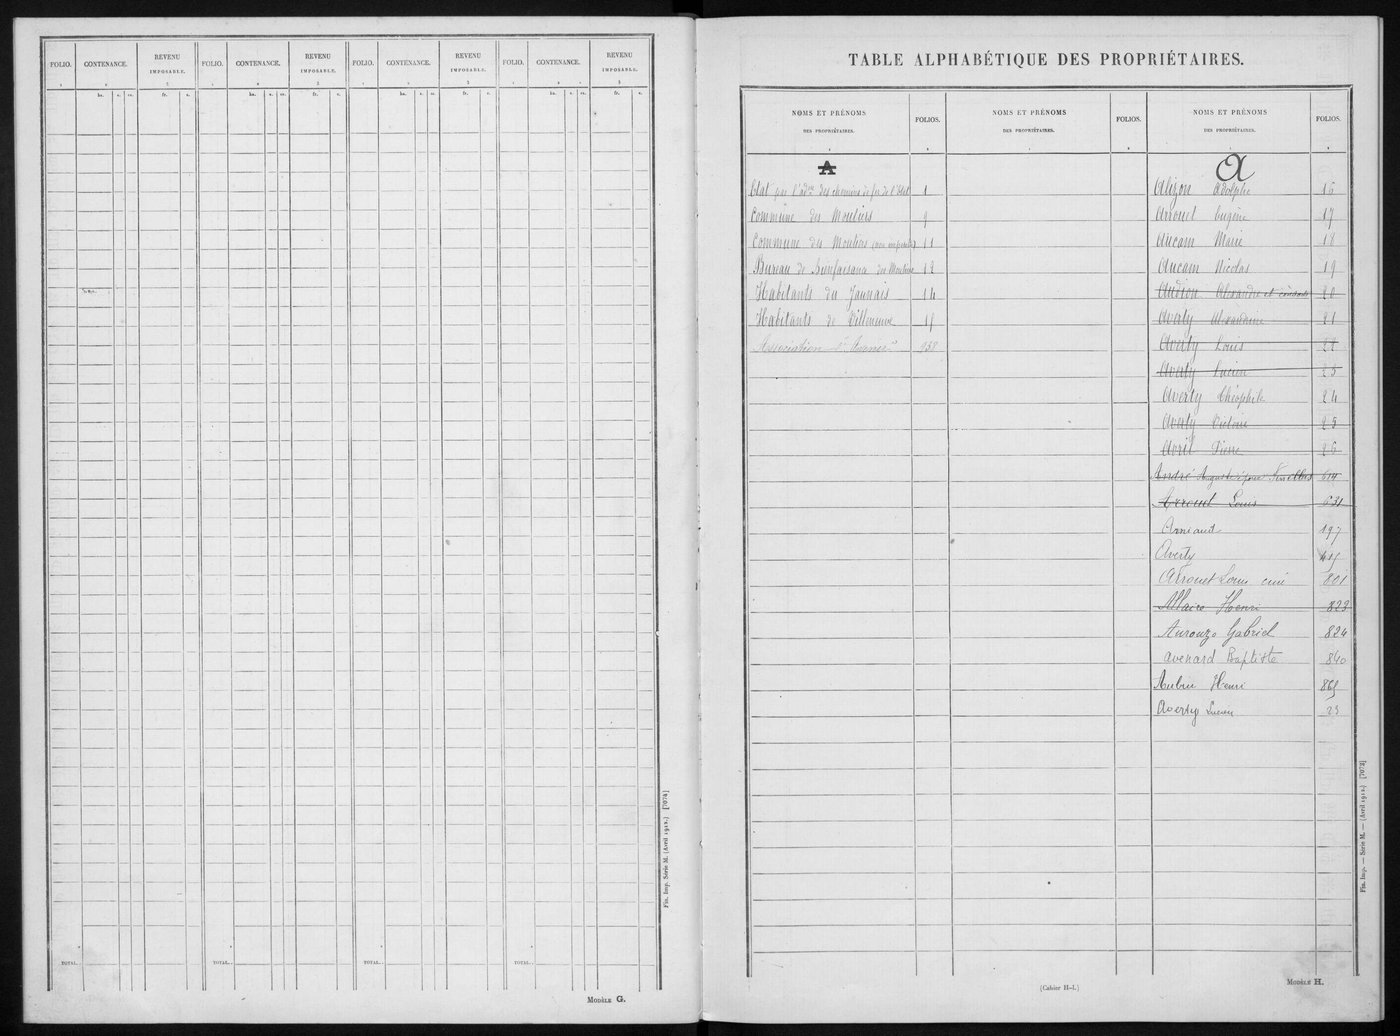 FOLIO. CONTENANCE. REVENU IMPOSABLE. FOLIO. CONTENANCE. REVENU IMPOSABLE. FOLIO. CONTENANCE. REVENU IMPOSABLE. FOLIO. CONTENANCE. REVENU IMPOSABLE.
1 2 3 1 2 3 1 2 3 1 2 3
ha. a. ca. fr. c. ha. a. ca. fr. c. ha. a. ca. fr. c. ha. a. ca. fr. c.
TOTAL. TOTAL. TOTAL. TOTAL.
Fin. Imp. Série M. (Avril 1912.) [7074]
MODÈLE G.
TABLE ALPHABÉTIQUE DES PROPRIÉTAIRES.
NOMS ET PRÉNOMS DES PROPRIÉTAIRES. FOLIOS. NOMS ET PRÉNOMS DES PROPRIÉTAIRES. FOLIOS. NOMS ET PRÉNOMS DES PROPRIÉTAIRES. FOLIOS.
1 2 1 2 1 2
A
Etat par l'adon des chemins de fer de l'Etat 1
Commune des Moutiers 9
Commune des Moutiers 11
Bureau de Bienfaisance des Moutiers 12
Habitants du Jaunais 14
Habitants de Villeneuve 15
Association "l'Avenir" 938
A
Alizon Adolphe 16
Arrouet Eugène 17
Aucam Marie 18
Aucam Nicolas 19
Audion Alexandre et consorts 20
Averty Alexandrine 21
Averty Louis 22
Averty Lucien 23
Averty Théophile 24
Averty Victoire 25
Avril Pierre 26
André Auguste 614
Arrouet Louis 631
Arniaud 197
Averty 415
Arrouet Louis 801
Allaire Henri 823
Aurouzo Gabriel 824
Avenard Baptiste 840
Aubin Henri 865
Averty Lucien 23
Fin. Imp. — Série M. — (Avril 1912.) [7073]
(Cahier H-1.)
MODÈLE H.